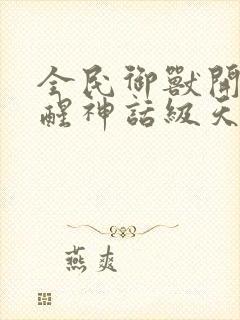 全民御獸開
醒神話級天
燕爽